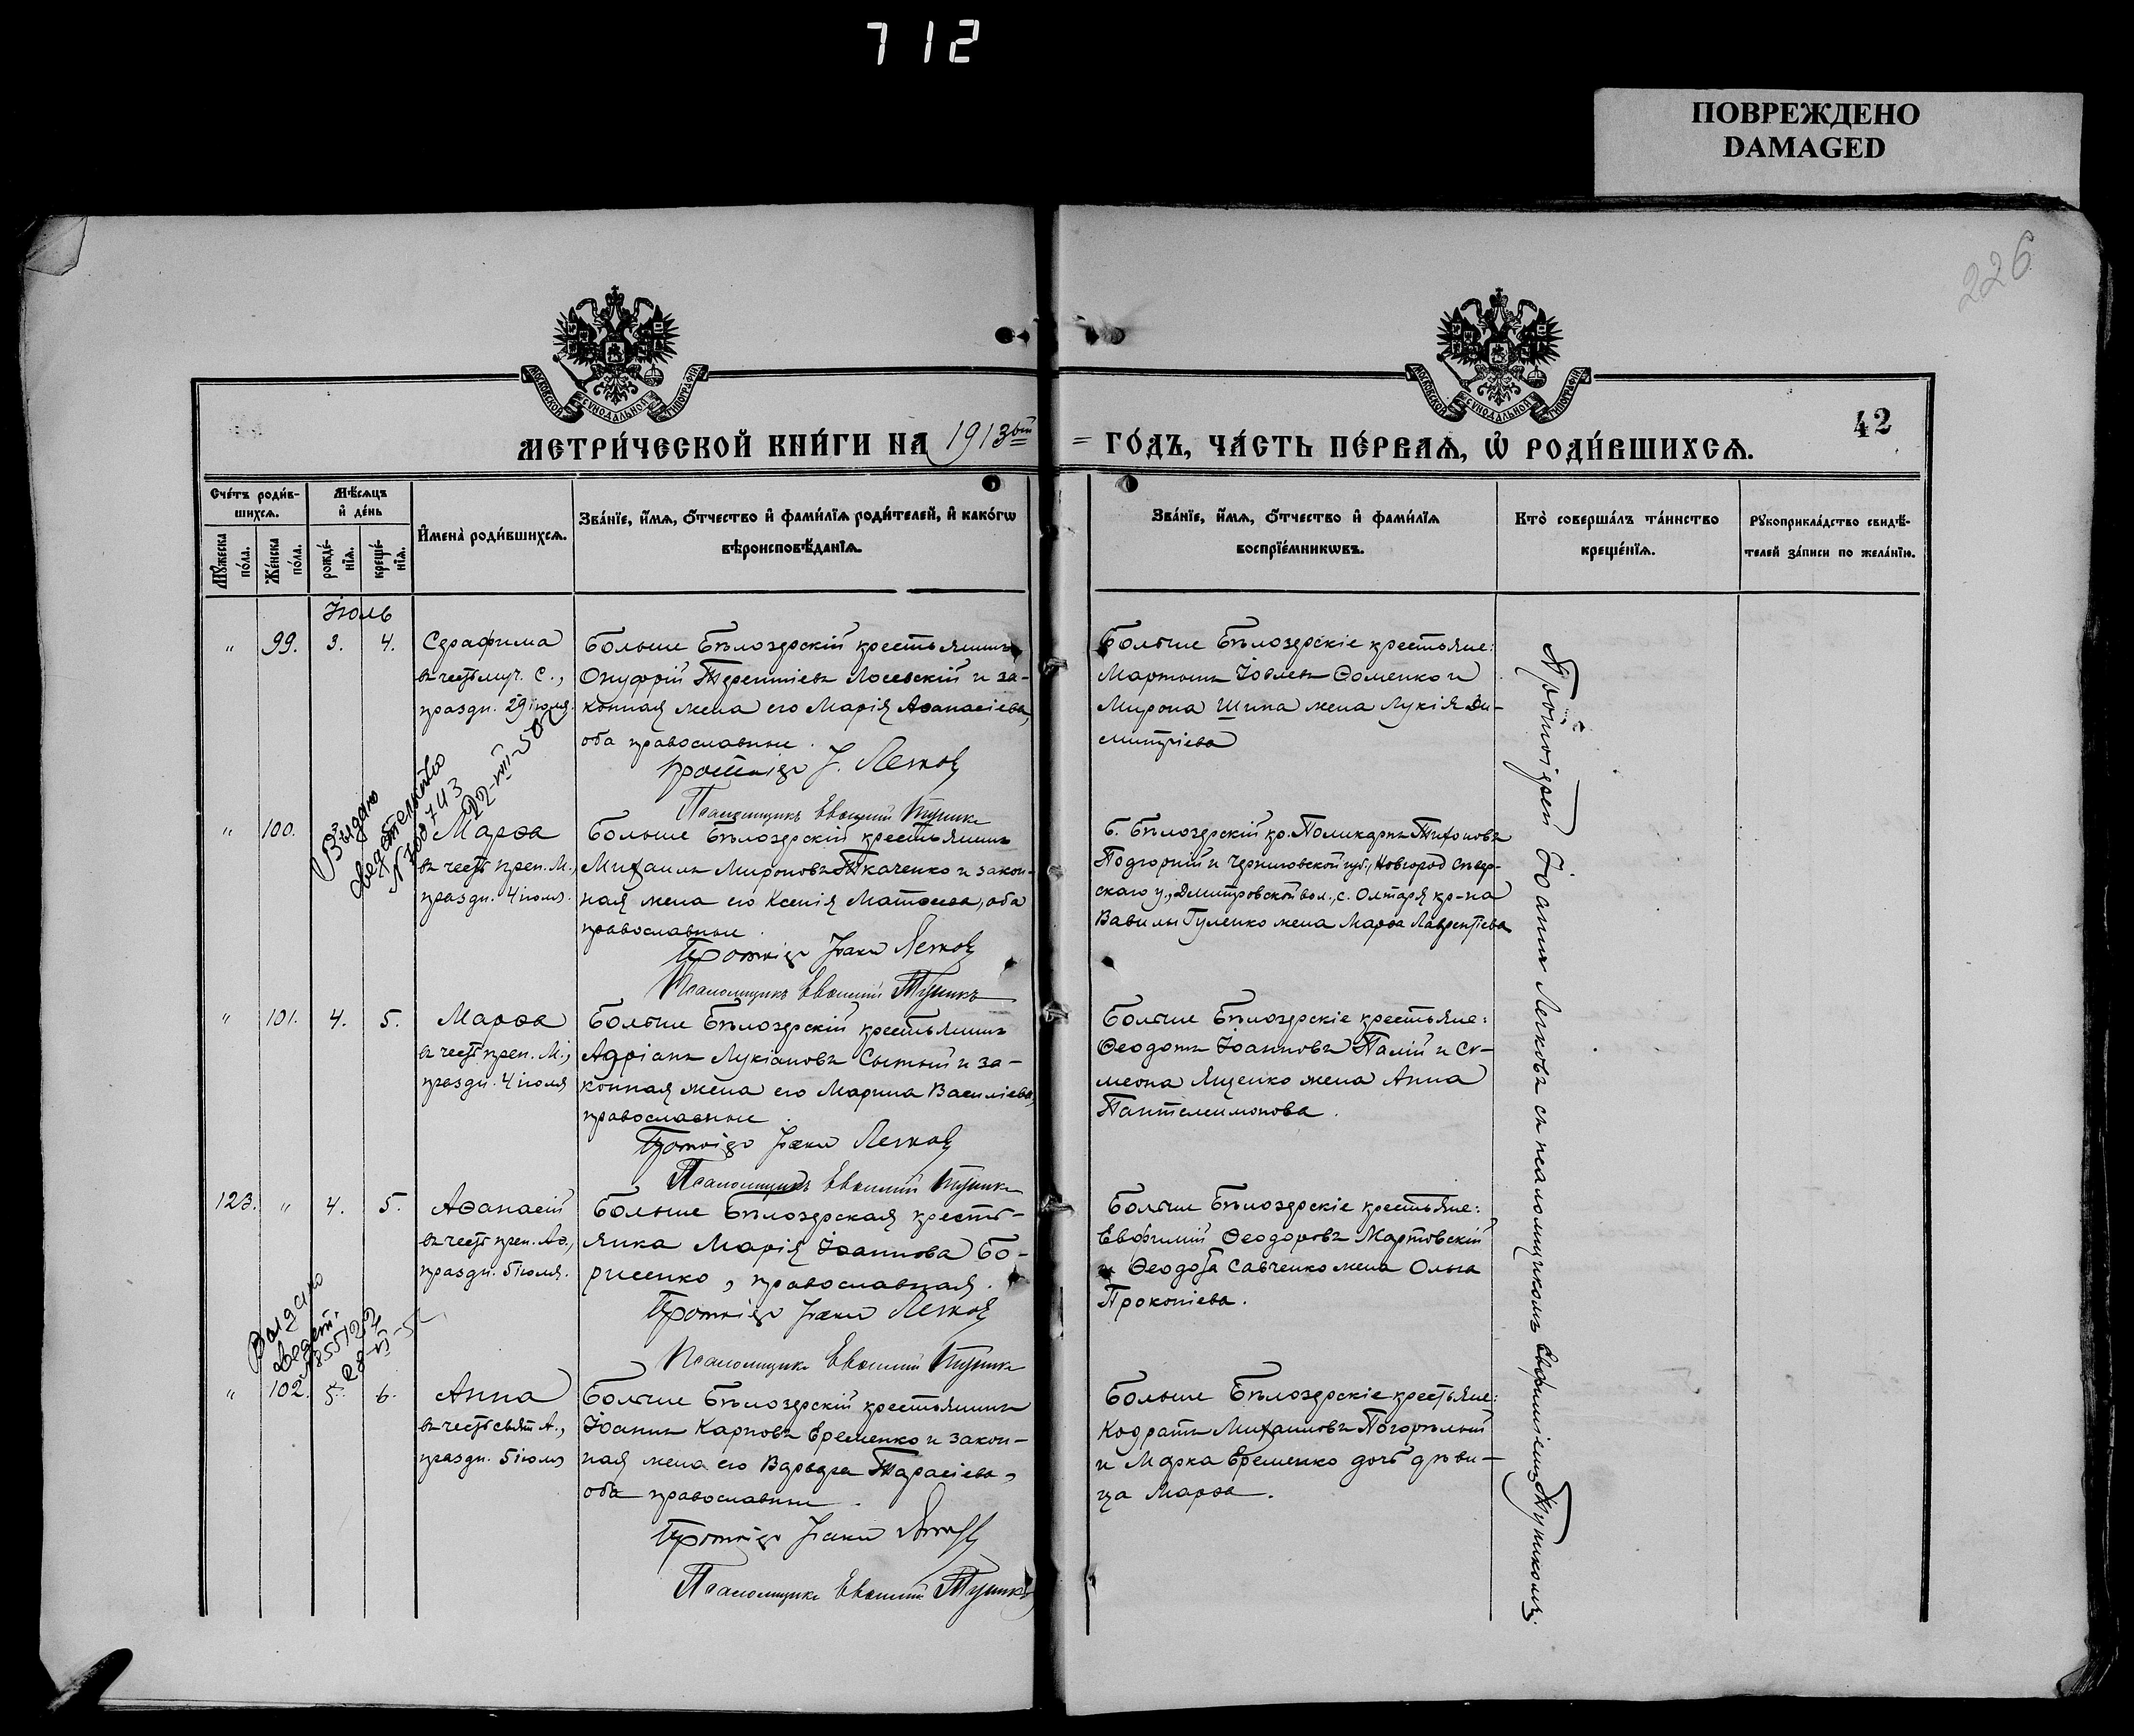 712
ПОВРЕЖДЕНО
DAMAGED
226
МОСКОВСКОЙ СѴНОДАЛЬНОЙ ТИПОГРАФІИ
МОСКОВСКОЙ СѴНОДАЛЬНОЙ ТИПОГРАФІИ
42
МЕТРИ́ЧЕСКОЙ КНИ́ГИ НА 1913ый = ГО́ДЪ, ЧА́СТЬ ПЕ́РВАѦ, Ѡ҆ РОДИ́ВШИХСѦ.
Сче́тъ роди́в-
шихсѧ.
Мѣ́сѧцъ
и҆ де́нь
Мꙋ́жеска
по́ла.
Же́нска
по́ла.
рожде́-
нїѧ.
креще́-
нїѧ.
И҆мена̀ роди́вшихсѧ.
Зва́нїе, и҆́мѧ, ѻ҆́тчество и҆ фами́лїѧ роди́телей, и҆ како́гѡ
вѣроисповѣ́данїѧ.
Зва́нїе, и҆́мѧ, ѻ҆́тчество и҆ фами́лїѧ
воспрїе́мникѡвъ.
Кто̀ соверша́лъ та́инство
креще́нїѧ.
Рꙋкоприкла́дство свидѣ́-
телей за́писи по жела́нїю.
Іюль
" 99. 3. 4. Серафима
въ честь муч. С.,
праздн. 29 іюля.
Больше Бѣлозерскій крестьянинъ
Онуфрій Терентіевъ Лосевскій и за-
конная жена его Марія Аѳанасіева,
оба православные.
Протоіерей І. Легковъ
Псаломщикъ Евфимій Тупикъ
Больше Бѣлозерскіе крестьяне:
Мартынъ Іовлевъ Ѳоменко и
Мирона Шина жена Лукія Ди-
митріева
Выдано
свидетельство
22-VII-50
" 100. Марѳа
въ честь преп. М.,
праздн. 4 іюля.
Больше Бѣлозерскій крестьянинъ
Михаилъ Мироновъ Ткаченко и закон-
ная жена его Ксенія Матѳеева, оба
православные.
Протоіерей Іоаннъ Легковъ
Псаломщикъ Евфимій Тупикъ
Б. Бѣлозерскій кр. Поликарпъ Тихоновъ
Подгорный и Черниговской губ., Новгород Сѣвер-
скаго у., Дмитровской вол., с. Олтаря кр-на
Вавилы Гуленко жена Марѳа Лаврентіева
" 101. 4. 5. Марѳа
въ честь преп. М.,
праздн. 4 іюля
Больше Бѣлозерскій крестьянинъ
Адріанъ Лукіановъ Сытый и за-
конная жена его Марина Василіева,
православные.
Протоіерей Іоаннъ Легковъ
Псаломщикъ Евфимій Тупикъ
Больше Бѣлозерскіе крестьяне:
Ѳеодотъ Іоанновъ Палій и Сѵ-
меона Ященко жена Анна
Пантелеимонова.
123. " 4. 5. Аѳанасій
въ честь преп. Аѳ.,
праздн. 5 іюля.
Больше Бѣлозерская кресть-
янка Марія Іоаннова Бо-
рисенко, православная.
Протоіерей Іоаннъ Легковъ
Псаломщикъ Евфимій Тупикъ
Больше Бѣлозерскіе крестьяне:
Евфимій Ѳеодоровъ Мартовскій
и Ѳеодота Савченко жена Ольга
Прокопіева.
Выдано
свидет.
" 102. 5. 6. Анна
въ честь свят. А.,
праздн. 5 іюля
Больше Бѣлозерскій крестьянинъ
Іоаннъ Карповъ Еременко и закон-
ная жена его Варвара Тарасіева,
оба православные.
Протоіерей Іоаннъ Легковъ
Псаломщикъ Евфимій Тупикъ
Больше Бѣлозерскіе крестьяне:
Кодратъ Михаиловъ Погорѣлый
и Марка Еременко дочь дѣви-
ца Марѳа.
Протоіерей Іоаннъ Легковъ съ псаломщикомъ Евфиміемъ Тупикомъ.